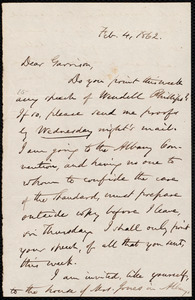 Feb. 4, 1862.
Dear Garrison,
Do you print this week
any speech of Wendell Phillips?
If so, please send me proofs
by Wednesday night's mail.
I am going to the Albany Con-
vention, and having no one to
whom to confide the care
of the Standard, must prepare
outside copy before I leave,
on Thursday. I shall only print
your speech, if all that is sent,
this week.
I am invited, like yourself,
to the house of Mrs. Jones in Albany